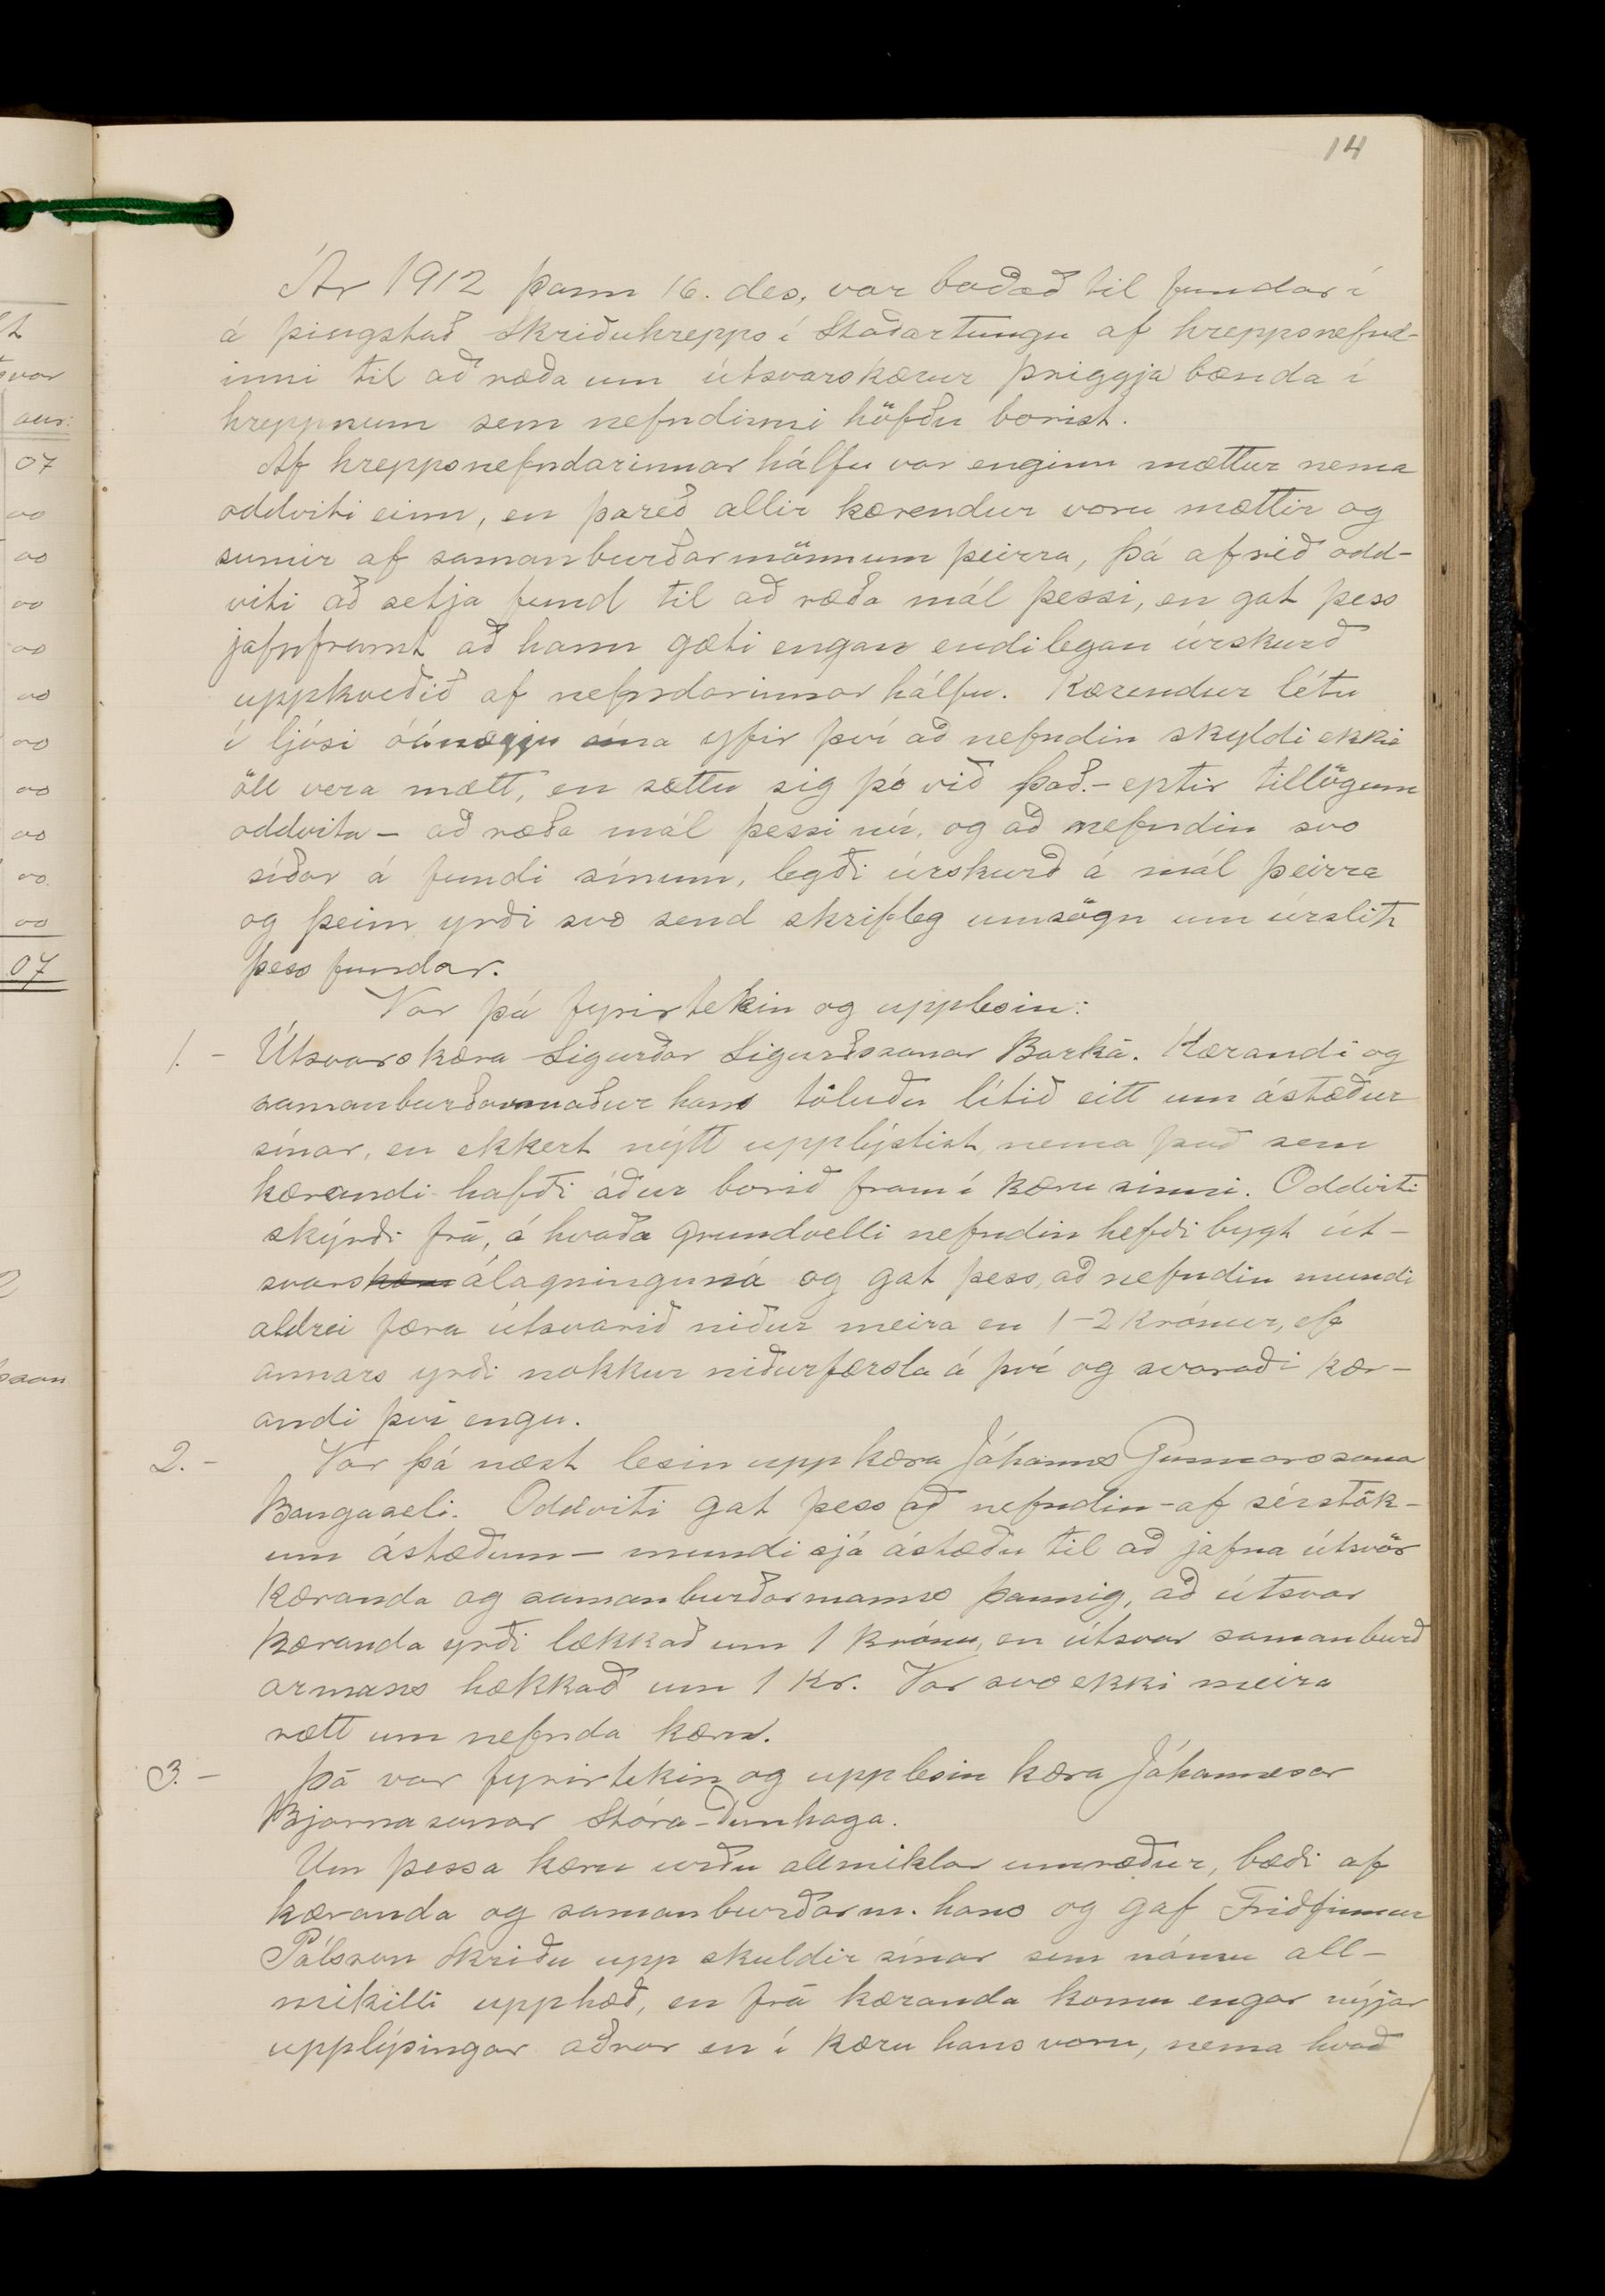 14
Ár 1912 þann 16. des, var boðað til fundar í
á þingstað Skriðuhrepps í Staðartungu af hreppsnefnd-
inni til að ræða um útsvarskærur þriggja bænda í
hreppnum sem nefndinni höfðu borist.
Af hreppsnefndarinnar hálfu var enginn mættur nema
oddviti einn, en þareð allir kærendur voru mættir og
sumir af samanburðarmönnum þeirra, þá afréð odd-
viti að setja fund til að ræða mál þessi, en gat þess
jafnframt að hann gæti engan endilegan úrskurð
uppkveðið af nefndarinnar hálfu. Kærendur létu
í ljósi óánægju sína yfir því að nefndin skyldi ekki
öll vera mætt, en sættu sig þó við það - eptir tillögum
oddvita - að ræða mál þessi nú, og að nefndin svo
síðar á fundi sínum, legði úrskurð á mál þeirra
og þeim yrði svo send skrifleg umsögn um úrslit
þess fundar.
Var þá fyrirtekin og upplesin:
1. - Útsvarskæra Sigurðar Sigurðssonar Barká. Kærandi og
samanburðarmaður hans töluðu lítið eitt um ástæður
sínar, en ekkert nýtt upplýstist, nema það sem
kærandi hafði áður borið fram í kæru sinni. Oddviti
skýrði frá, á hvaða grundvelli nefndin hefði bygt út-
svarskæru álagninguna og gat þess, að nefndin mundi
aldrei færa útsvarið niður meira en 1-2 krónur, ef
annars yrði nokkur niðurfærsla á því og svaraði kær-
andi því engu.
2. - Var þá næst lesin upp kæra Jóhanns Gunnarssonar
Bangaseli. Oddviti gat þess að nefndin - af sérstök-
um ástæðum - mundi sjá ástæðu til að jafna útsvör
kæranda og samanburðarmanns þannig, að útsvar
kæranda yrði lækkað um 1 krónu, en útsvar samanburð
armans hækkað um 1 kr. Var svo ekki meira
rætt um nefnda kæru.
3. - Þá var fyrirtekin og upplesin kæra Jóhannesar
Bjarnasonar Stóra-Dunhaga.
Um þessa kæru urðu allmiklar umræður, bæði af
kæranda og samanburðarm. hans og gaf Friðfinnur
Pálsson Skriðu upp skuldir sínar sem námu all-
mikilli upphæð, en frá kæranda komu engar nýjar
upplýsingar aðrar en í kæru hans voru, nema hvað
aur:
07
00
00
00
00
00
00
00
00
00
00
07